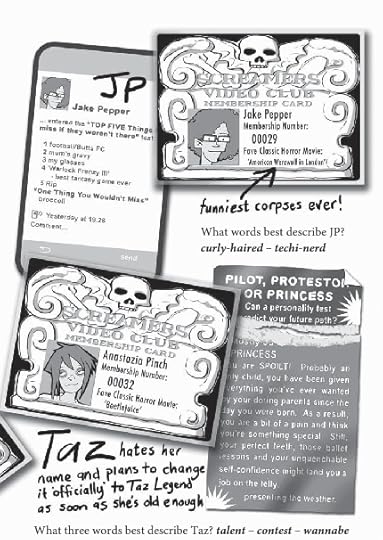 JP
Jake Pepper
... entered the "TOP FIVE Things
miss if they weren't there" 
1 football/Butts FC
2 mum's gravy
3 my glasses
4 'Warlock Frenzy III'
- best fantasy game ever
5 Rip
"One Thing You Wouldn't Miss"
broccoli
Yesterday at 19.26
Comment...
send
SCREAMERS
VIDEO CLUB
MEMBERSHIP CARD
Jake Pepper
Membership Number:
00029
Fave Classic Horror Movie:
'American Werewolf in London'!
funniest corpses ever!
What words best describe JP?
curly-haired – techi-nerd
SCREAMERS
VIDEO CLUB
MEMBERSHIP CARD
Anastazia Pinch
Membership Number:
00032
Fave Classic Horror Movie:
'Beetlejuice'
PILOT, PROTESTOR
OR PRINCESS
Can a personality test
predict your future path?
PRINCESS
You are SPOILT! Probably an
only child, you have been given
everything you've ever wanted
by your doting parents since the
day you were born. As a result,
you are a bit of a pain and think
you're something special. Still,
your perfect teeth, those ballet
lessons and your unquenchable
self-confidence might land you a
job on the telly
presenting the weather.
Taz hates her
name and plans to change
it 'officially' to Taz Legend
as soon as she's old enough
What three words best describe Taz? talent – contest – wannabe